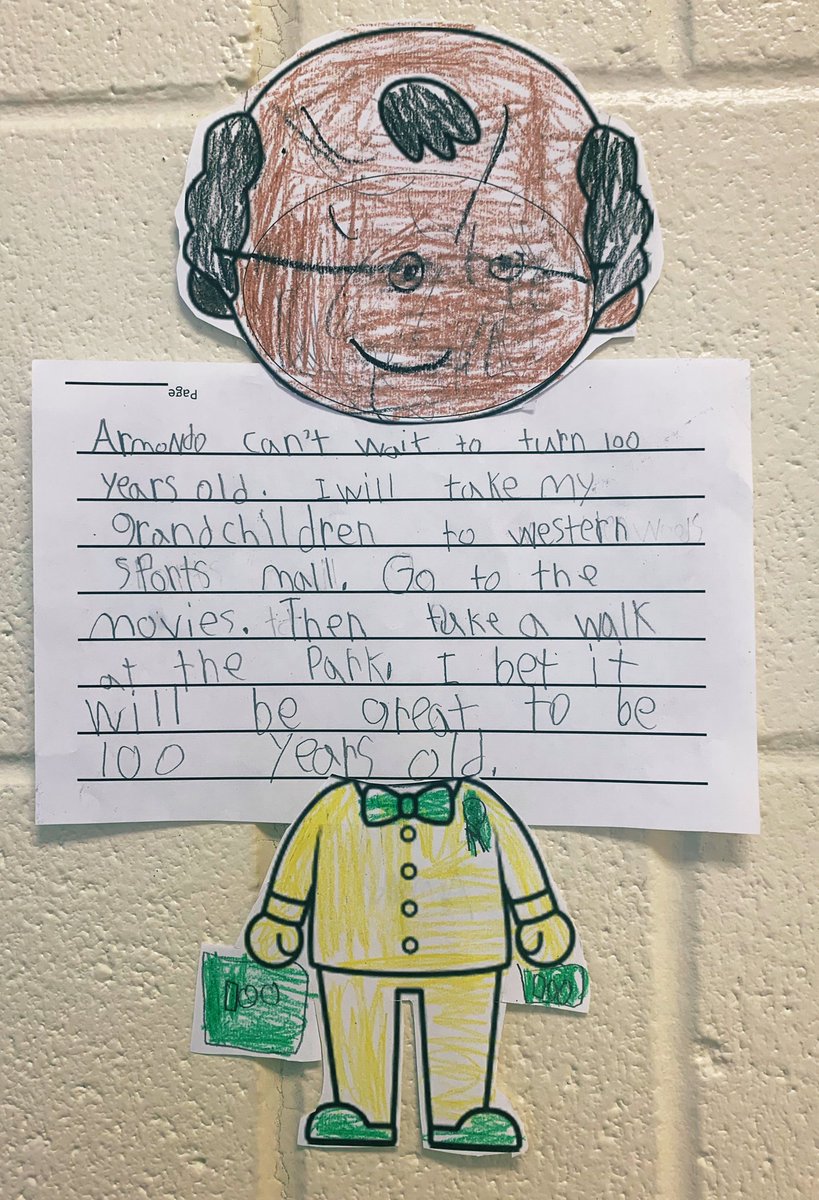 Page
Armondo can't wait to turn 100
years old. I will take my
grandchildren to western
sports mall. Go to the
movies. Then take a walk
at the Park. I bet it
will be great to be
100 years old.
100